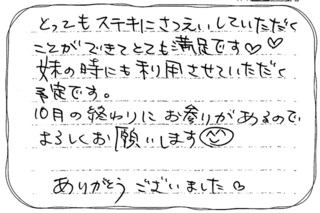 とってもステキにさつえいしていただく
ことができてとても満足です♡♡
妹の時にも利用させていただく
予定です。
10月の終わりにお参りがあるので
よろしくお願いします
ありがとうございました♡